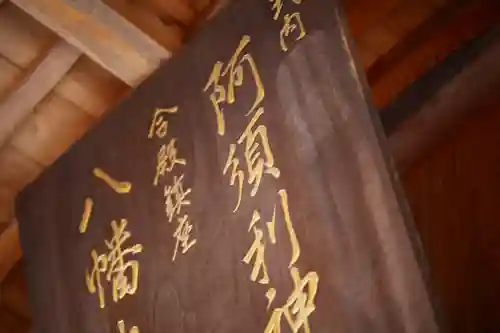 式内
阿須利神
合殿鎮座
八幡